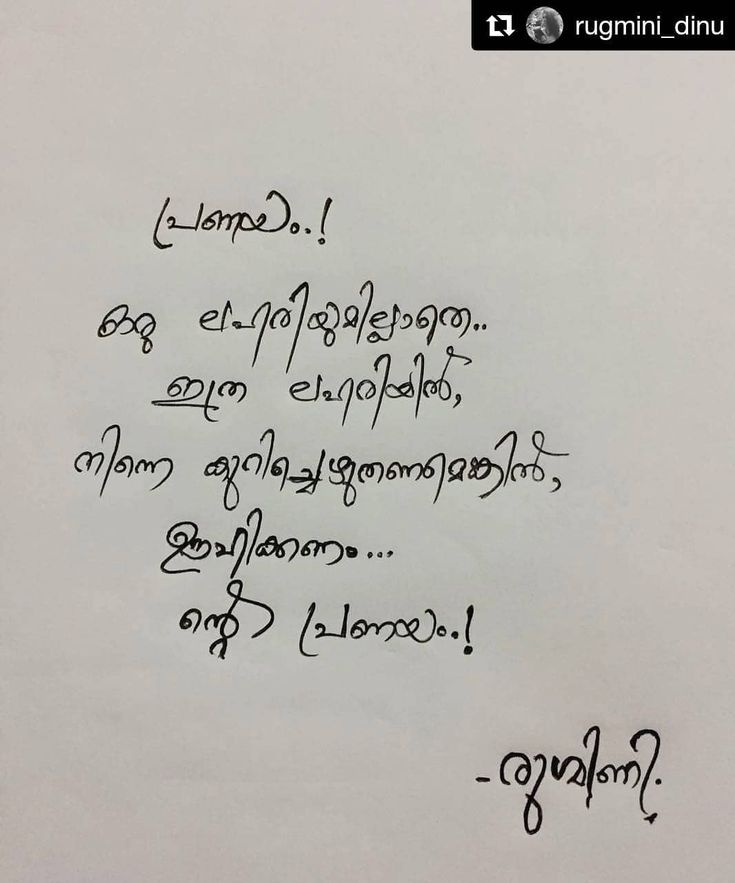 rugmini_dinu
പ്രണയം..!
ഒരു ലഹരിയുമില്ലാതെ..
ഇത്ര ലഹരിയിൽ,
നിന്നെ കുറിച്ചെഴുതണമെങ്കിൽ,
ഊഹിക്കണം...
ന്റെ പ്രണയം..!
-രുഗ്മിണി.